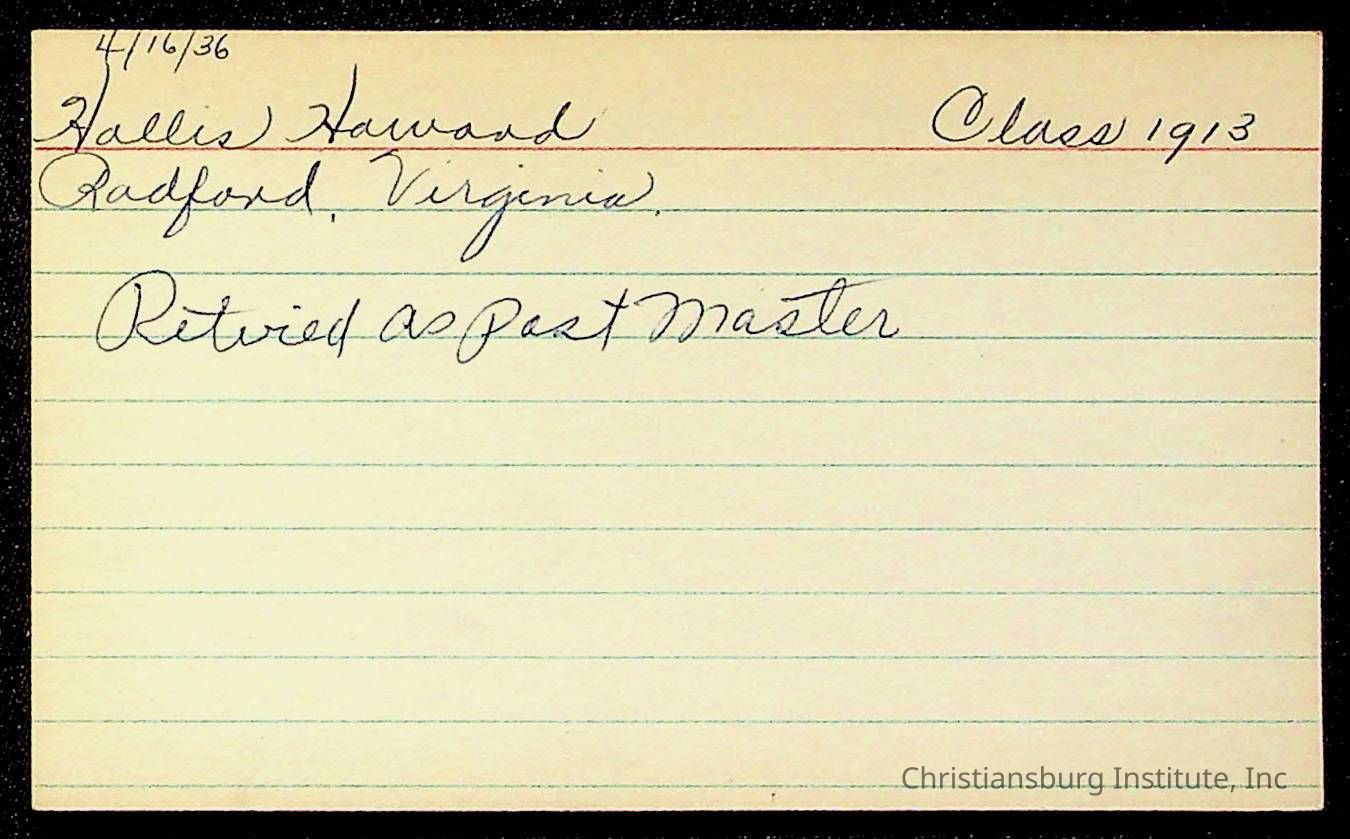 4/16/36
Hollis Howard Class 1913
Radford, Virginia.
Retried as Post Master
Christiansburg Institute, Inc